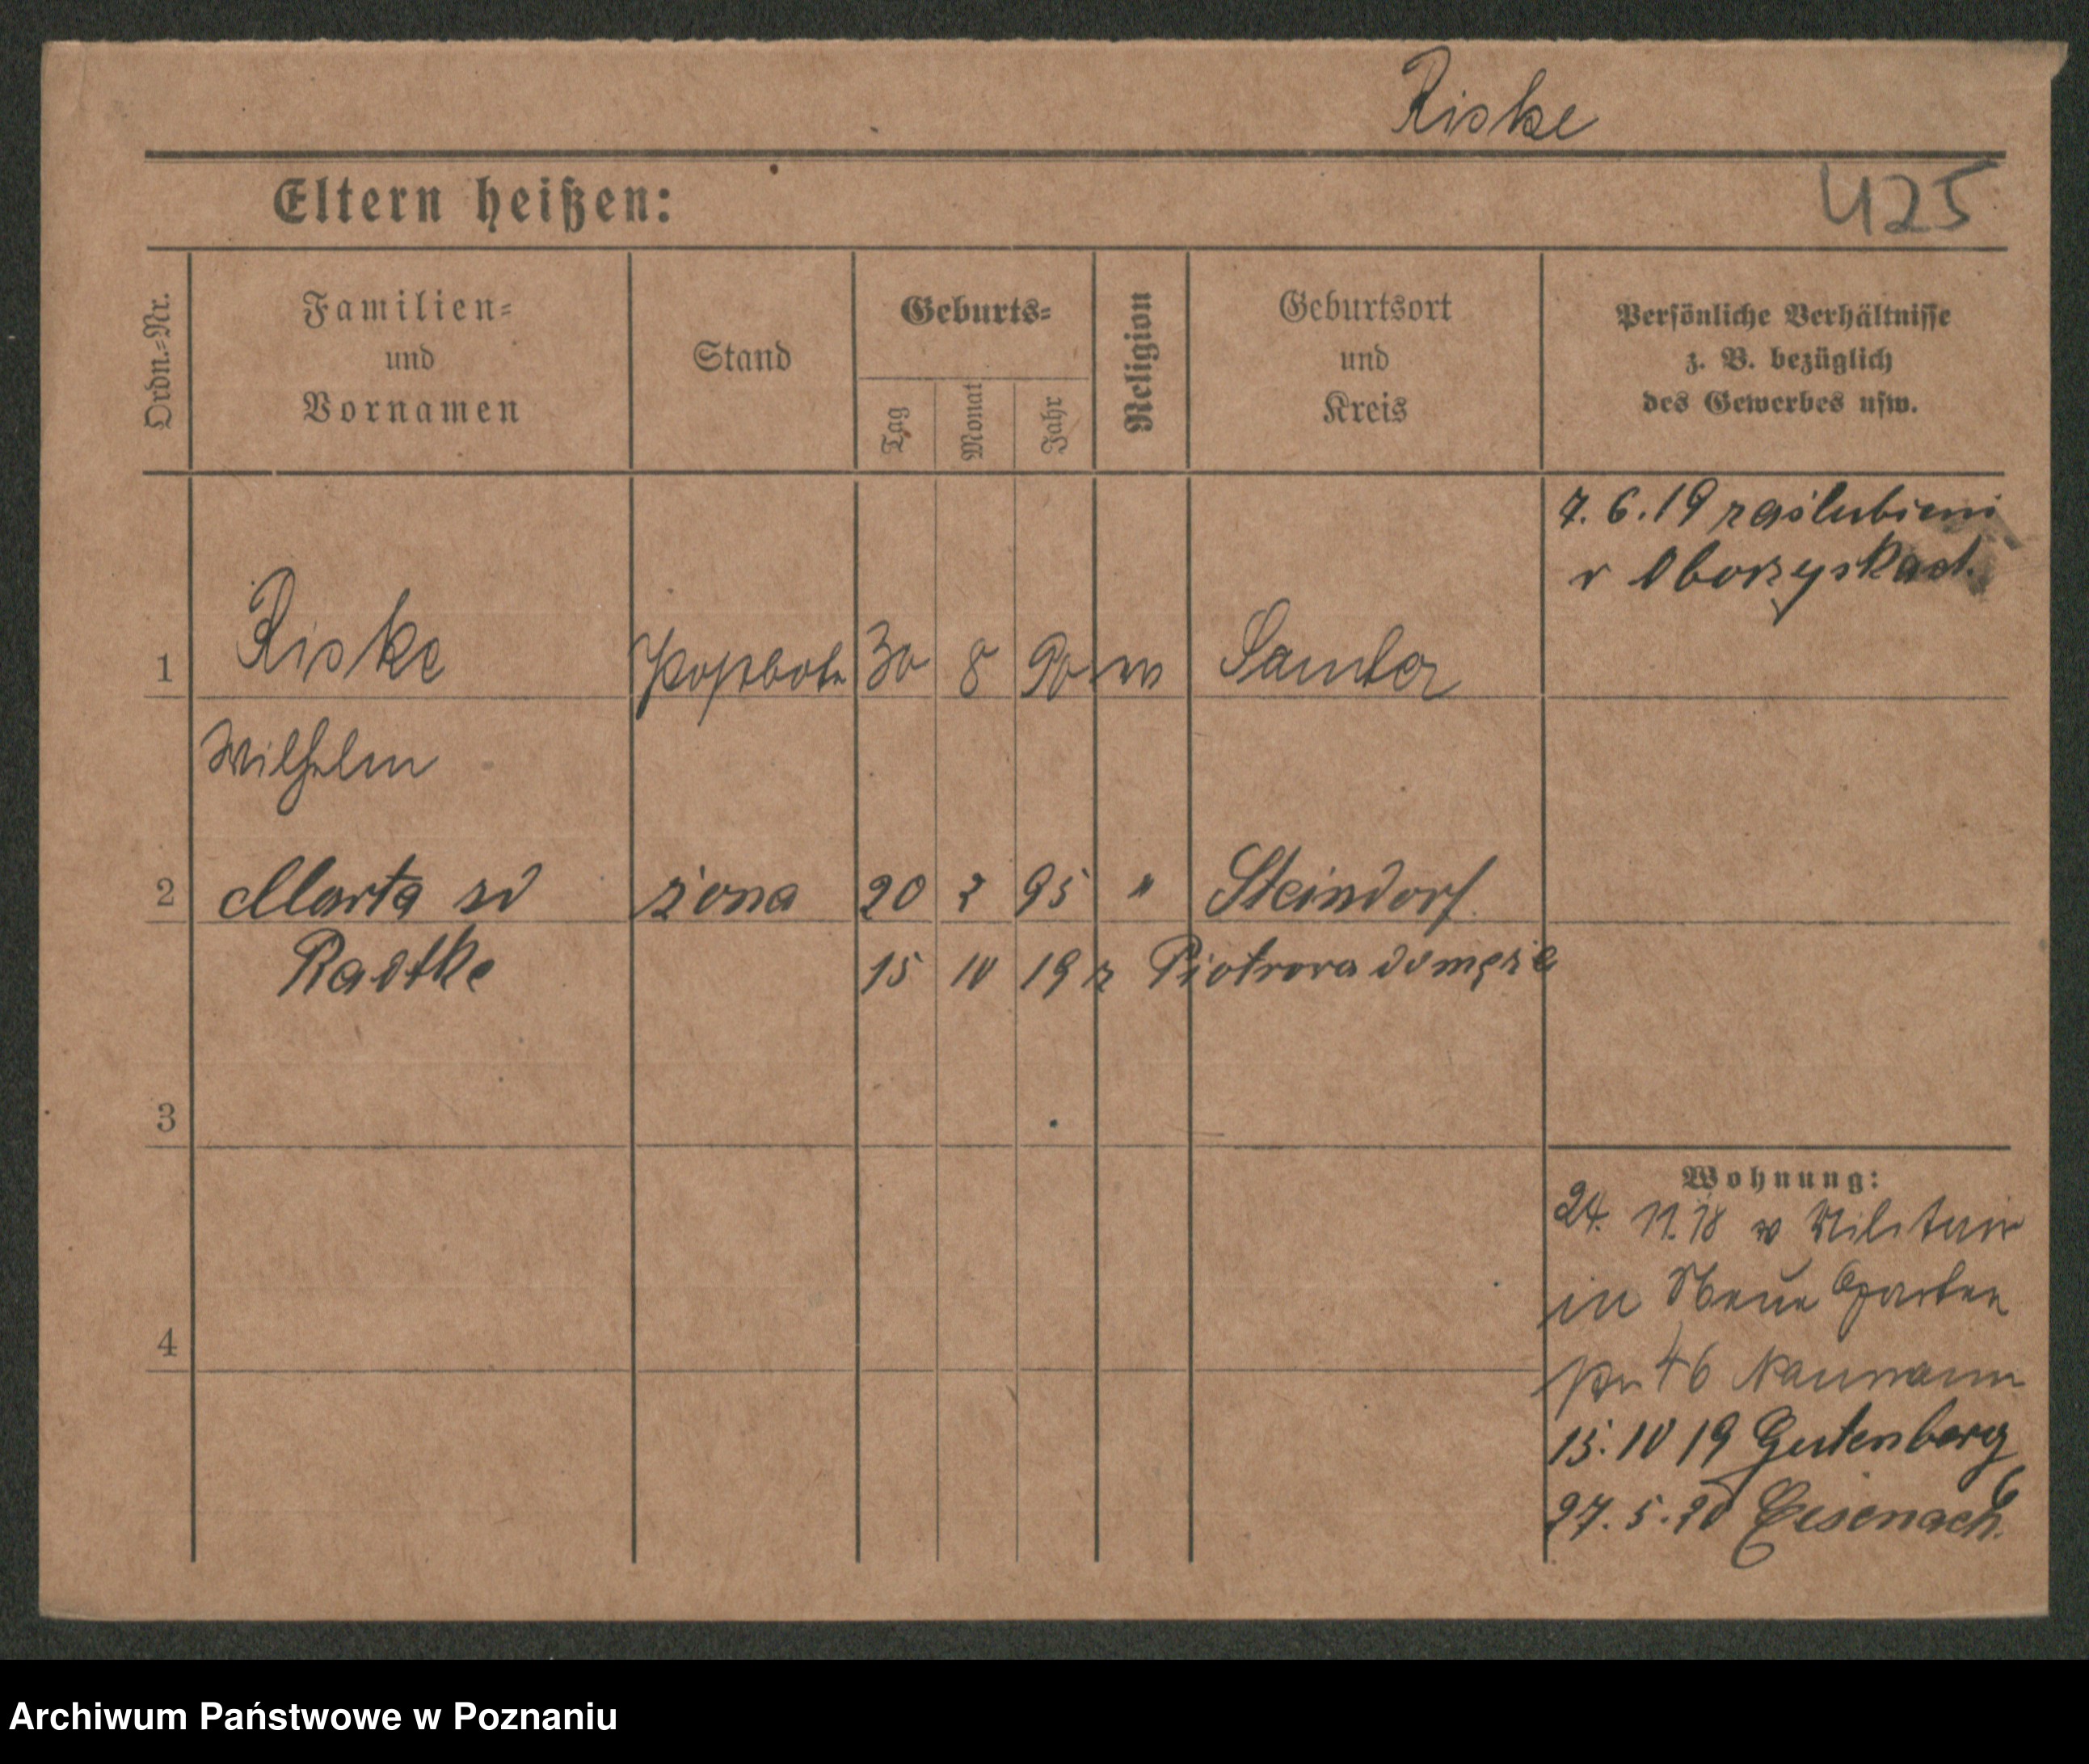 Riske
Eltern heißen:
425
Ordn.=Nr.
Familien=
und
Vornamen
Stand
Geburts=
Tag
Monat
Jahr
Religion
Geburtsort
und
Kreis
Persönliche Verhältnisse
z. B. bezüglich
des Gewerbes usw.
7.6.19 zaślubieni
v Oborzyskach.
1 Riske Postbote 30 8 90 Samter
Wilhelm
2 Marta zd żona 20 2 95 " Steindorf
Radtke 15 10 19 z Piotrowa do męża
3
4
Wohnung:
24. 11. 18 Militair
in Neue Garten
46 Naumann
15. 10 19 Gutenberg
6
27. 5. 20 Eisenach.
Archiwum Państwowe w Poznaniu